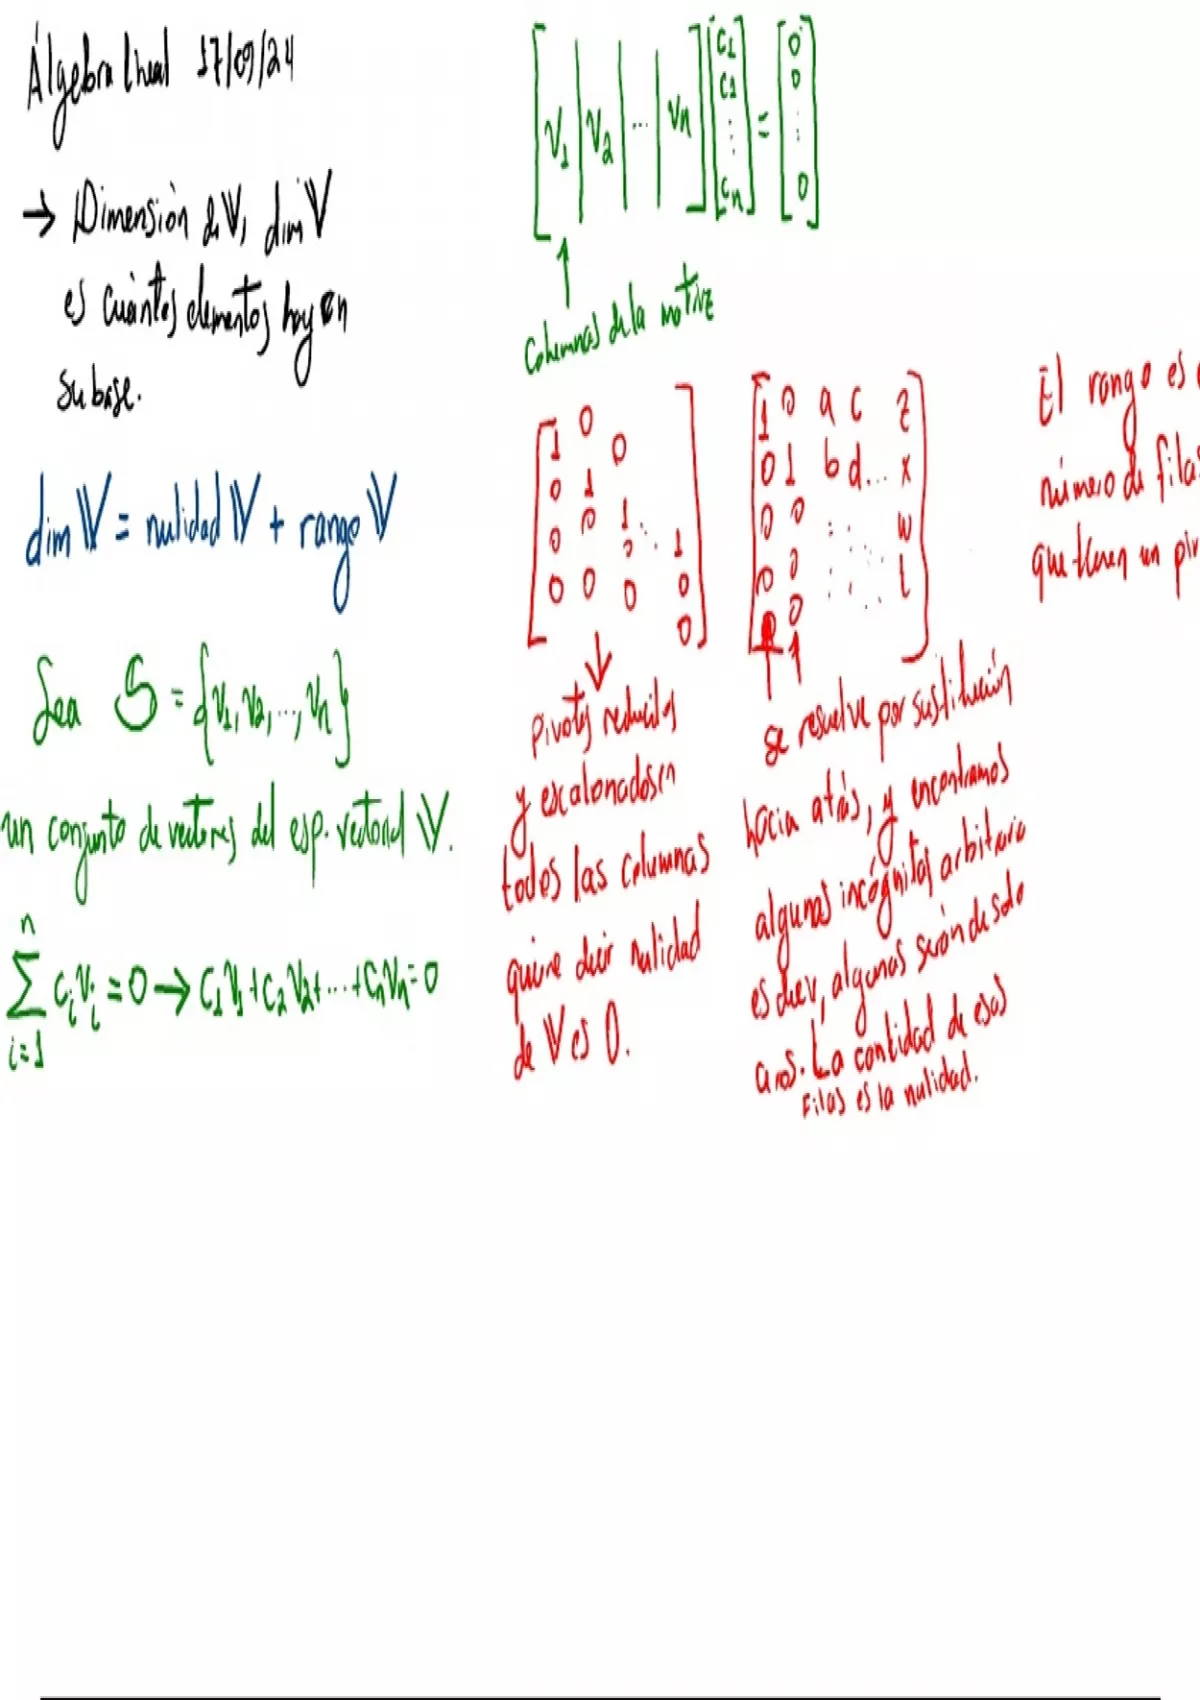 Álgebra lineal 17/09/24
→ Dimensión de V, dim V
es cuántos elementos hay en
su base.
dim V = nulidad V + rango V
Sea S = {v1, v2, ..., vn}
un conjunto de vectores del esp. vectorial V.
n
∑ ci vi = 0 → c1v1 + c2v2 + ... + cnvn = 0
i=1
[v1 | v2 | ... | vn] [c1 c1 ⋮ cn] = [0 0 ⋮ 0]
↑
columnas de la matriz
1 0 0
0 1
0 0 1 ⋱ 1
0 0 0 0
0
↓
pivotes reducidos
y escalonados en
todos las columnas
quiere decir nulidad
de V es 0.
1 0 a c z
0 1 b d ... x
0 0 w
0 0
0 0
↑ ↑
se resuelve por sustitución
hacia atrás, y encontramos
algunas incógnitas arbitraria
es decir, algunas serán de solo
La cantidad de esas
Filas es la nulidad.
El rango es
número de filas
que tienen un